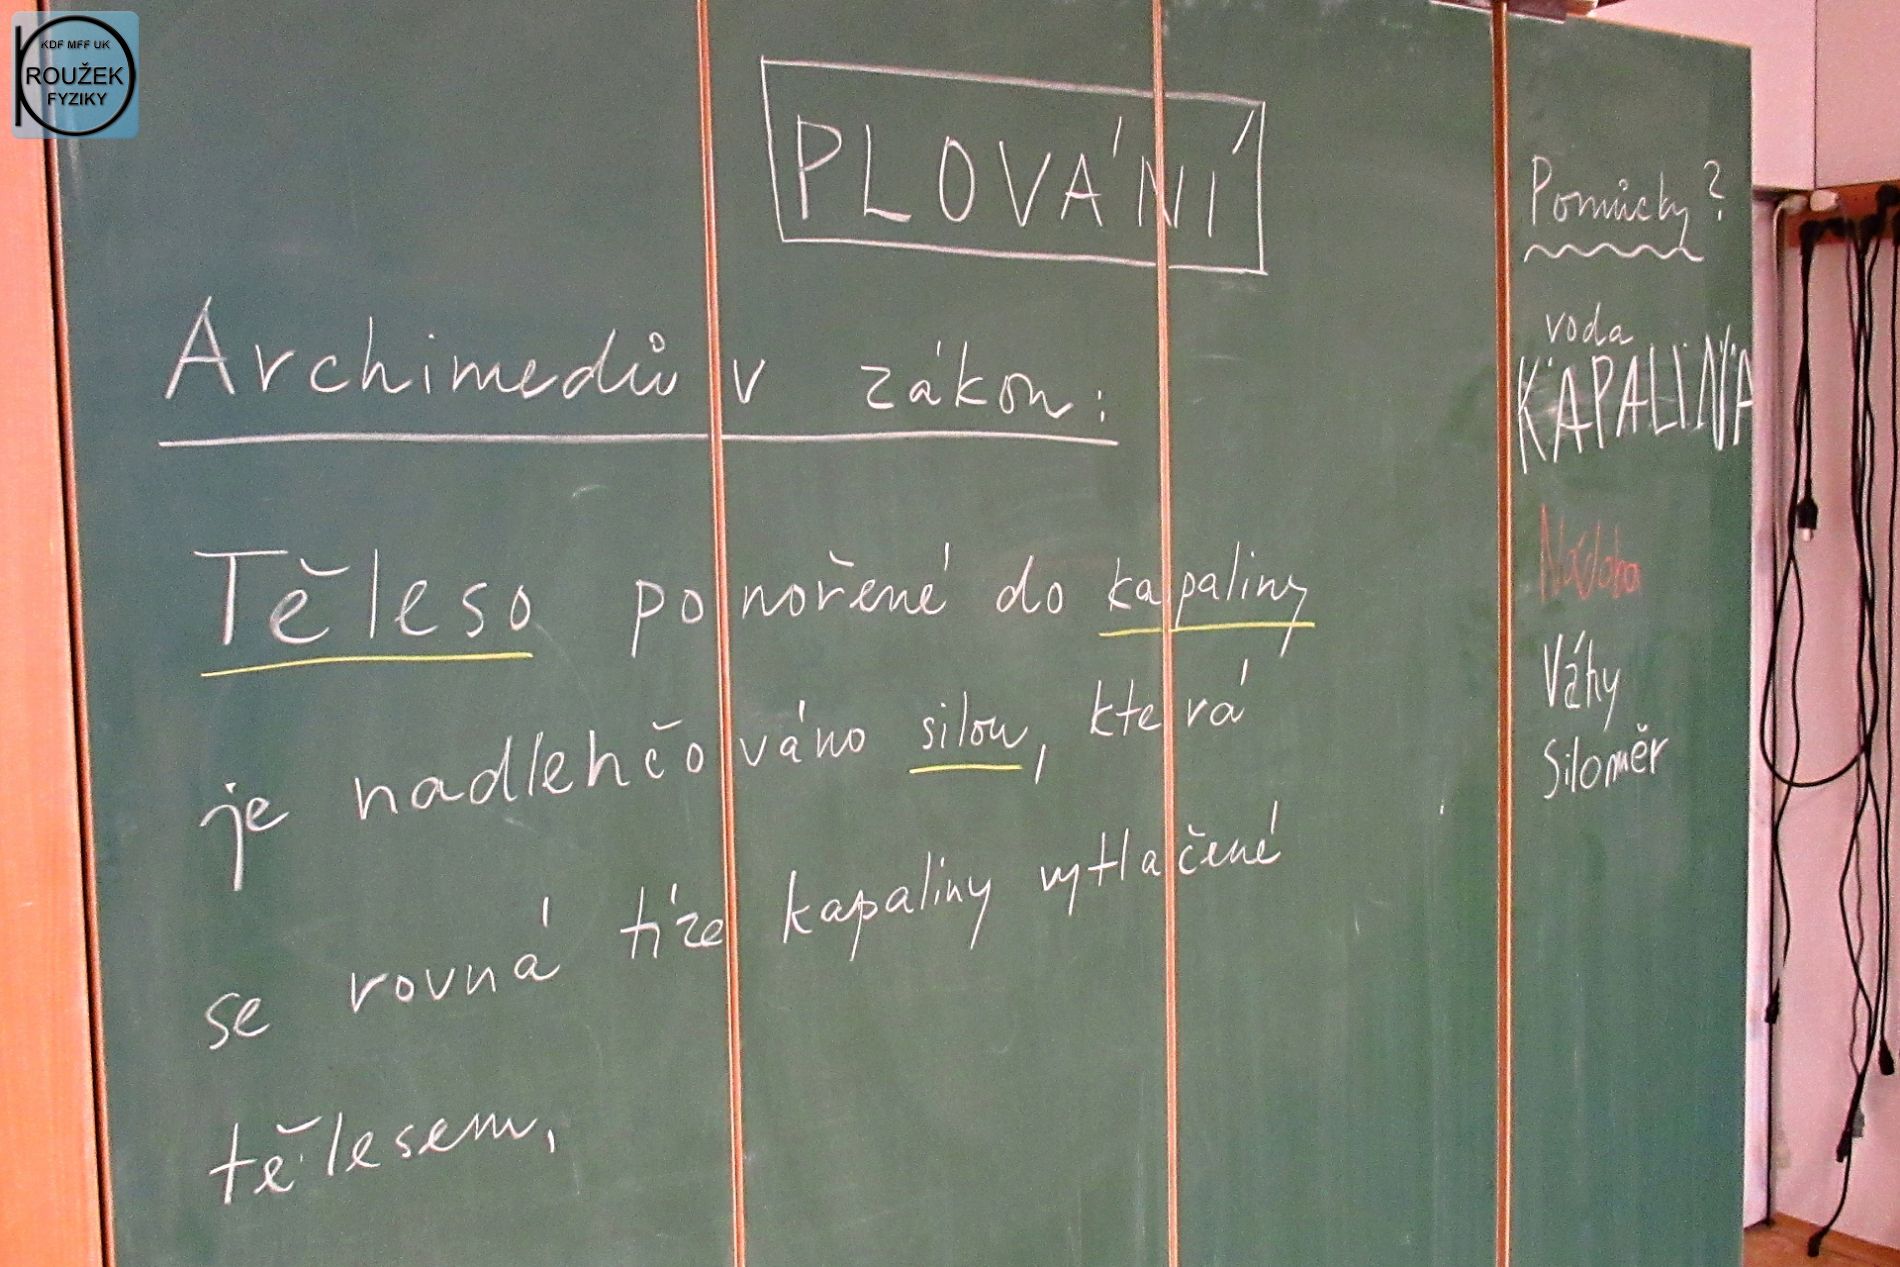 KDF MFF UK
KROUŽEK
FYZIKY
PLOVÁNÍ
Archimedův zákon:
Těleso ponořené do kapaliny
je nadlehčováno silou, která
se rovná tíze kapaliny vytlačené
tělesem.
Pomůcky?
voda
KAPALINA
Nádoba
Váhy
Siloměr